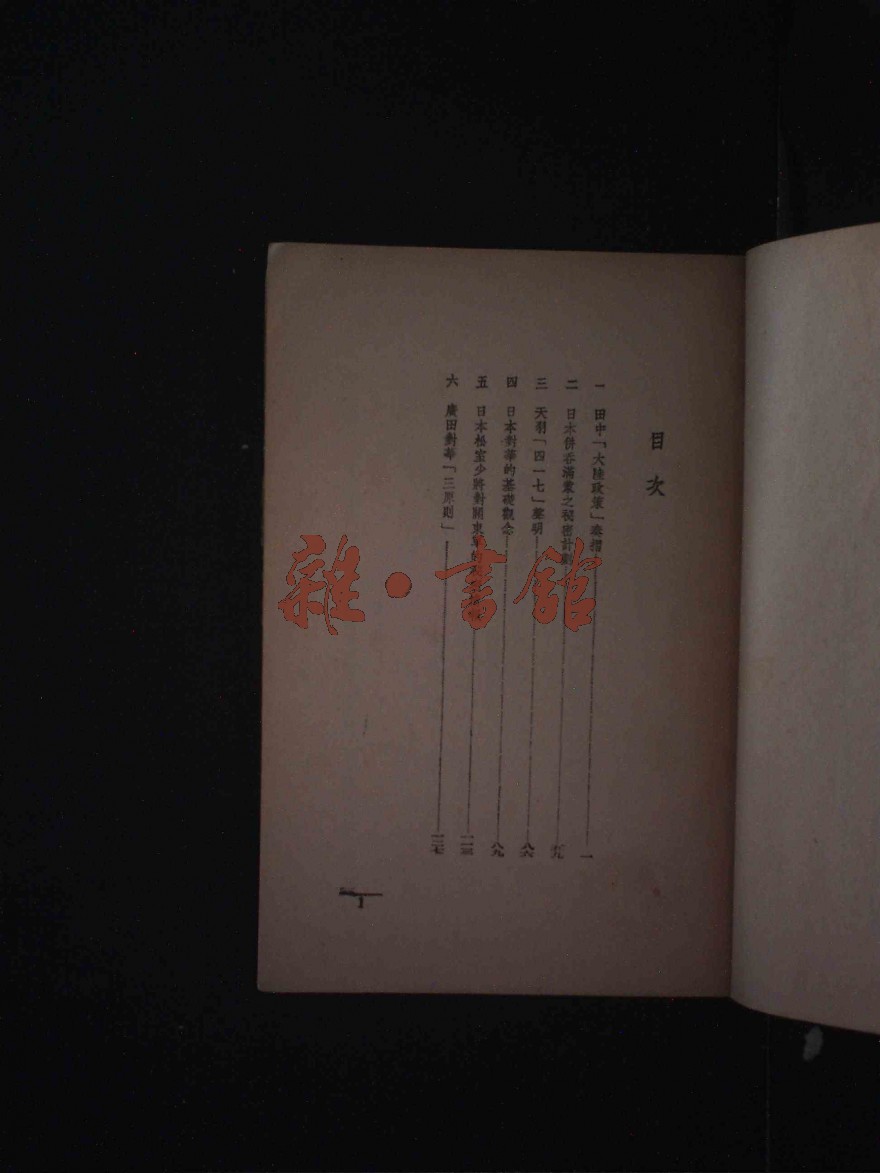 目次
一 田中「大陸政策」奏摺 一
二 日本併吞滿蒙之秘密計劃 五九
三 天羽「四一七」聲明 八六
四 日本對華的基礎觀念 八九
五 日本松室少將對關東軍的
六 廣田對華「三原則」
1
雜·書館